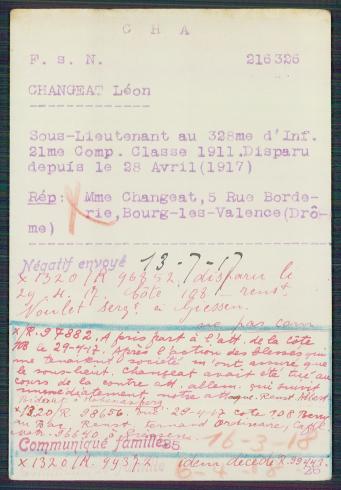 C H A
F. s. N. 216326
CHANGEAT Léon
Sous-Lieutenant au 328me d'Inf.
21me Comp. Classe 1911.Disparu
depuis le 28 Avril(1917)
Rép: Mme Changeat,5 Rue Borde-
rie,Bourg-les-Valence(Drô-
me)
Négatif envoyé 13-7-17
x 1320/R 96852. disparu le
29.4.17. Côte 108 - renst.
Noulet serg. à Giessen.
ne pas com
x/R.97882. A pris part à l'att. de la côte
108 le 29-4-17. Après l'action des blessés qui
me tenaient société m'ont assuré que
le sous lieut. Changeat avait été tué au
cours de la contre att. allem. qui suivit
immédiatement notre attaque. Renst. Albert
x 1320/R 98656. tué 29-4-17 côte 108 Berry
au Bac. Renst. Fernand Ordinaire, Capt.
16-3-18
Communiqué famille
x 1320/R. 99372. idem décédé R. 99443.
6-4-18 26